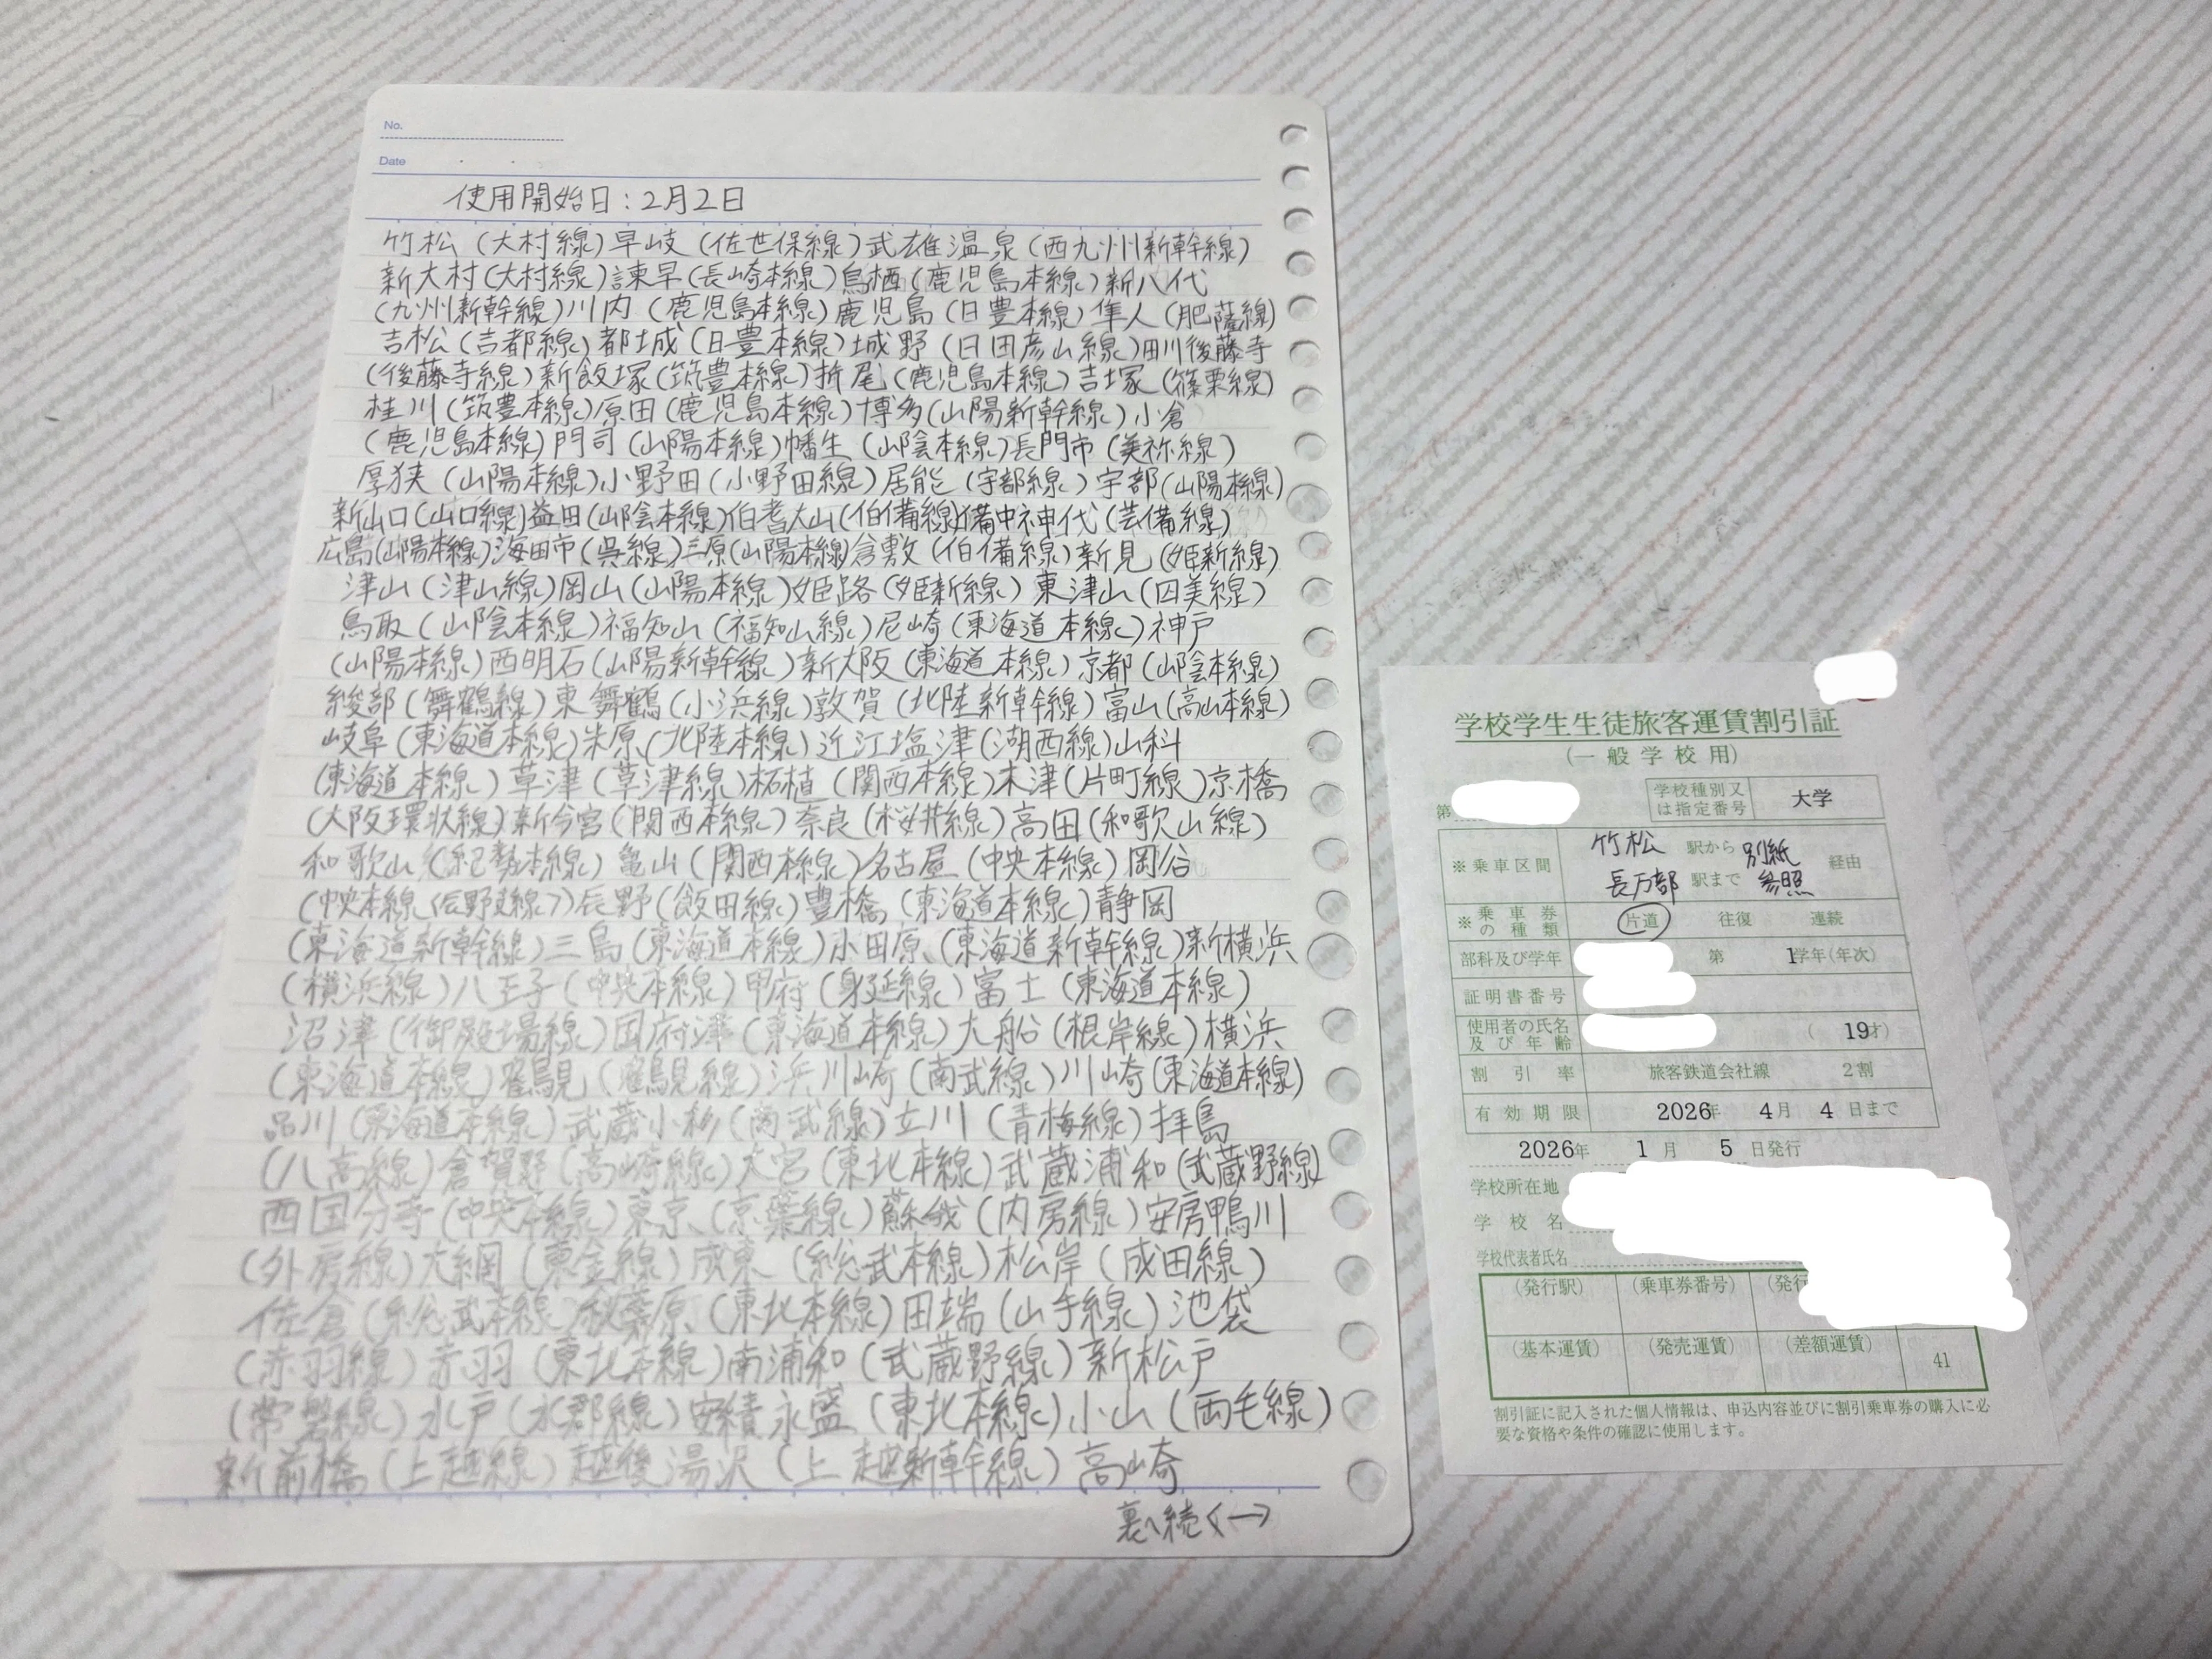 No.
Date
使用開始日：2月2日
竹松（大村線）早岐（佐世保線）武雄温泉（西九州新幹線）
新大村（大村線）諫早（長崎本線）鳥栖（鹿児島本線）新八代
（九州新幹線）川内（鹿児島本線）鹿児島（日豊本線）隼人（肥薩線）
吉松（吉都線）都城（日豊本線）城野（日田彦山線）田川後藤寺
（後藤寺線）新飯塚（筑豊本線）折尾（鹿児島本線）吉塚（篠栗線）
桂川（筑豊本線）原田（鹿児島本線）博多（山陽新幹線）小倉
（鹿児島本線）門司（山陽本線）幡生（山陰本線）長門市（美祢線）
厚狭（山陽本線）小野田（小野田線）居能（宇部線）宇部（山陽本線）
新山口（山口線）益田（山陰本線）伯耆大山（伯備線）備中神代（芸備線）
広島（山陽本線）海田市（呉線）三原（山陽本線）倉敷（伯備線）新見（姫新線）
津山（津山線）岡山（山陽本線）姫路（姫新線）東津山（因美線）
鳥取（山陰本線）福知山（福知山線）尼崎（東海道本線）神戸
（山陽本線）西明石（山陽新幹線）新大阪（東海道本線）京都（山陰本線）
綾部（舞鶴線）東舞鶴（小浜線）敦賀（北陸新幹線）富山（高山本線）
岐阜（東海道本線）米原（北陸本線）近江塩津（湖西線）山科
（東海道本線）草津（草津線）柘植（関西本線）木津（片町線）京橋
（大阪環状線）新今宮（関西本線）奈良（桜井線）高田（和歌山線）
和歌山（紀勢本線）亀山（関西本線）名古屋（中央本線）岡谷
（中央本線〈辰野支線〉）辰野（飯田線）豊橋（東海道本線）静岡
（東海道新幹線）三島（東海道本線）小田原（東海道新幹線）新横浜
（横浜線）八王子（中央本線）甲府（身延線）富士（東海道本線）
沼津（御殿場線）国府津（東海道本線）大船（根岸線）横浜
（東海道本線）鶴見（鶴見線）浜川崎（南武線）川崎（東海道本線）
品川（東海道本線）武蔵小杉（南武線）立川（青梅線）拝島
（八高線）倉賀野（高崎線）大宮（東北本線）武蔵浦和（武蔵野線）
西国分寺（中央本線）東京（京葉線）蘇我（内房線）安房鴨川
（外房線）大網（東金線）成東（総武本線）松岸（成田線）
佐倉（総武本線）秋葉原（東北本線）田端（山手線）池袋
（赤羽線）赤羽（東北本線）南浦和（武蔵野線）新松戸
（常磐線）水戸（水郡線）安積永盛（東北本線）小山（両毛線）
新前橋（上越線）越後湯沢（上越新幹線）高崎
裏へ続く→
学校学生生徒旅客運賃割引証
（一般学校用）
第
学校種別又は指定番号 大学
※乗車区間 竹松 駅から 別紙 経由
長万部 駅まで 参照
※乗車券の種類 片道 往復 連続
部科及び学年 第 1学年(年次)
証明書番号
使用者の氏名及び年齢 ( 19才)
割引率 旅客鉄道会社線 2割
有効期限 2026年 4月 4日まで
2026年 1月 5日発行
学校所在地
学校名
学校代表者氏名
(発行駅) (乗車券番号) (発行
(基本運賃) (発売運賃) (差額運賃) 41
割引証に記入された個人情報は、申込内容並びに割引乗車券の購入に必
要な資格や条件の確認に使用します。